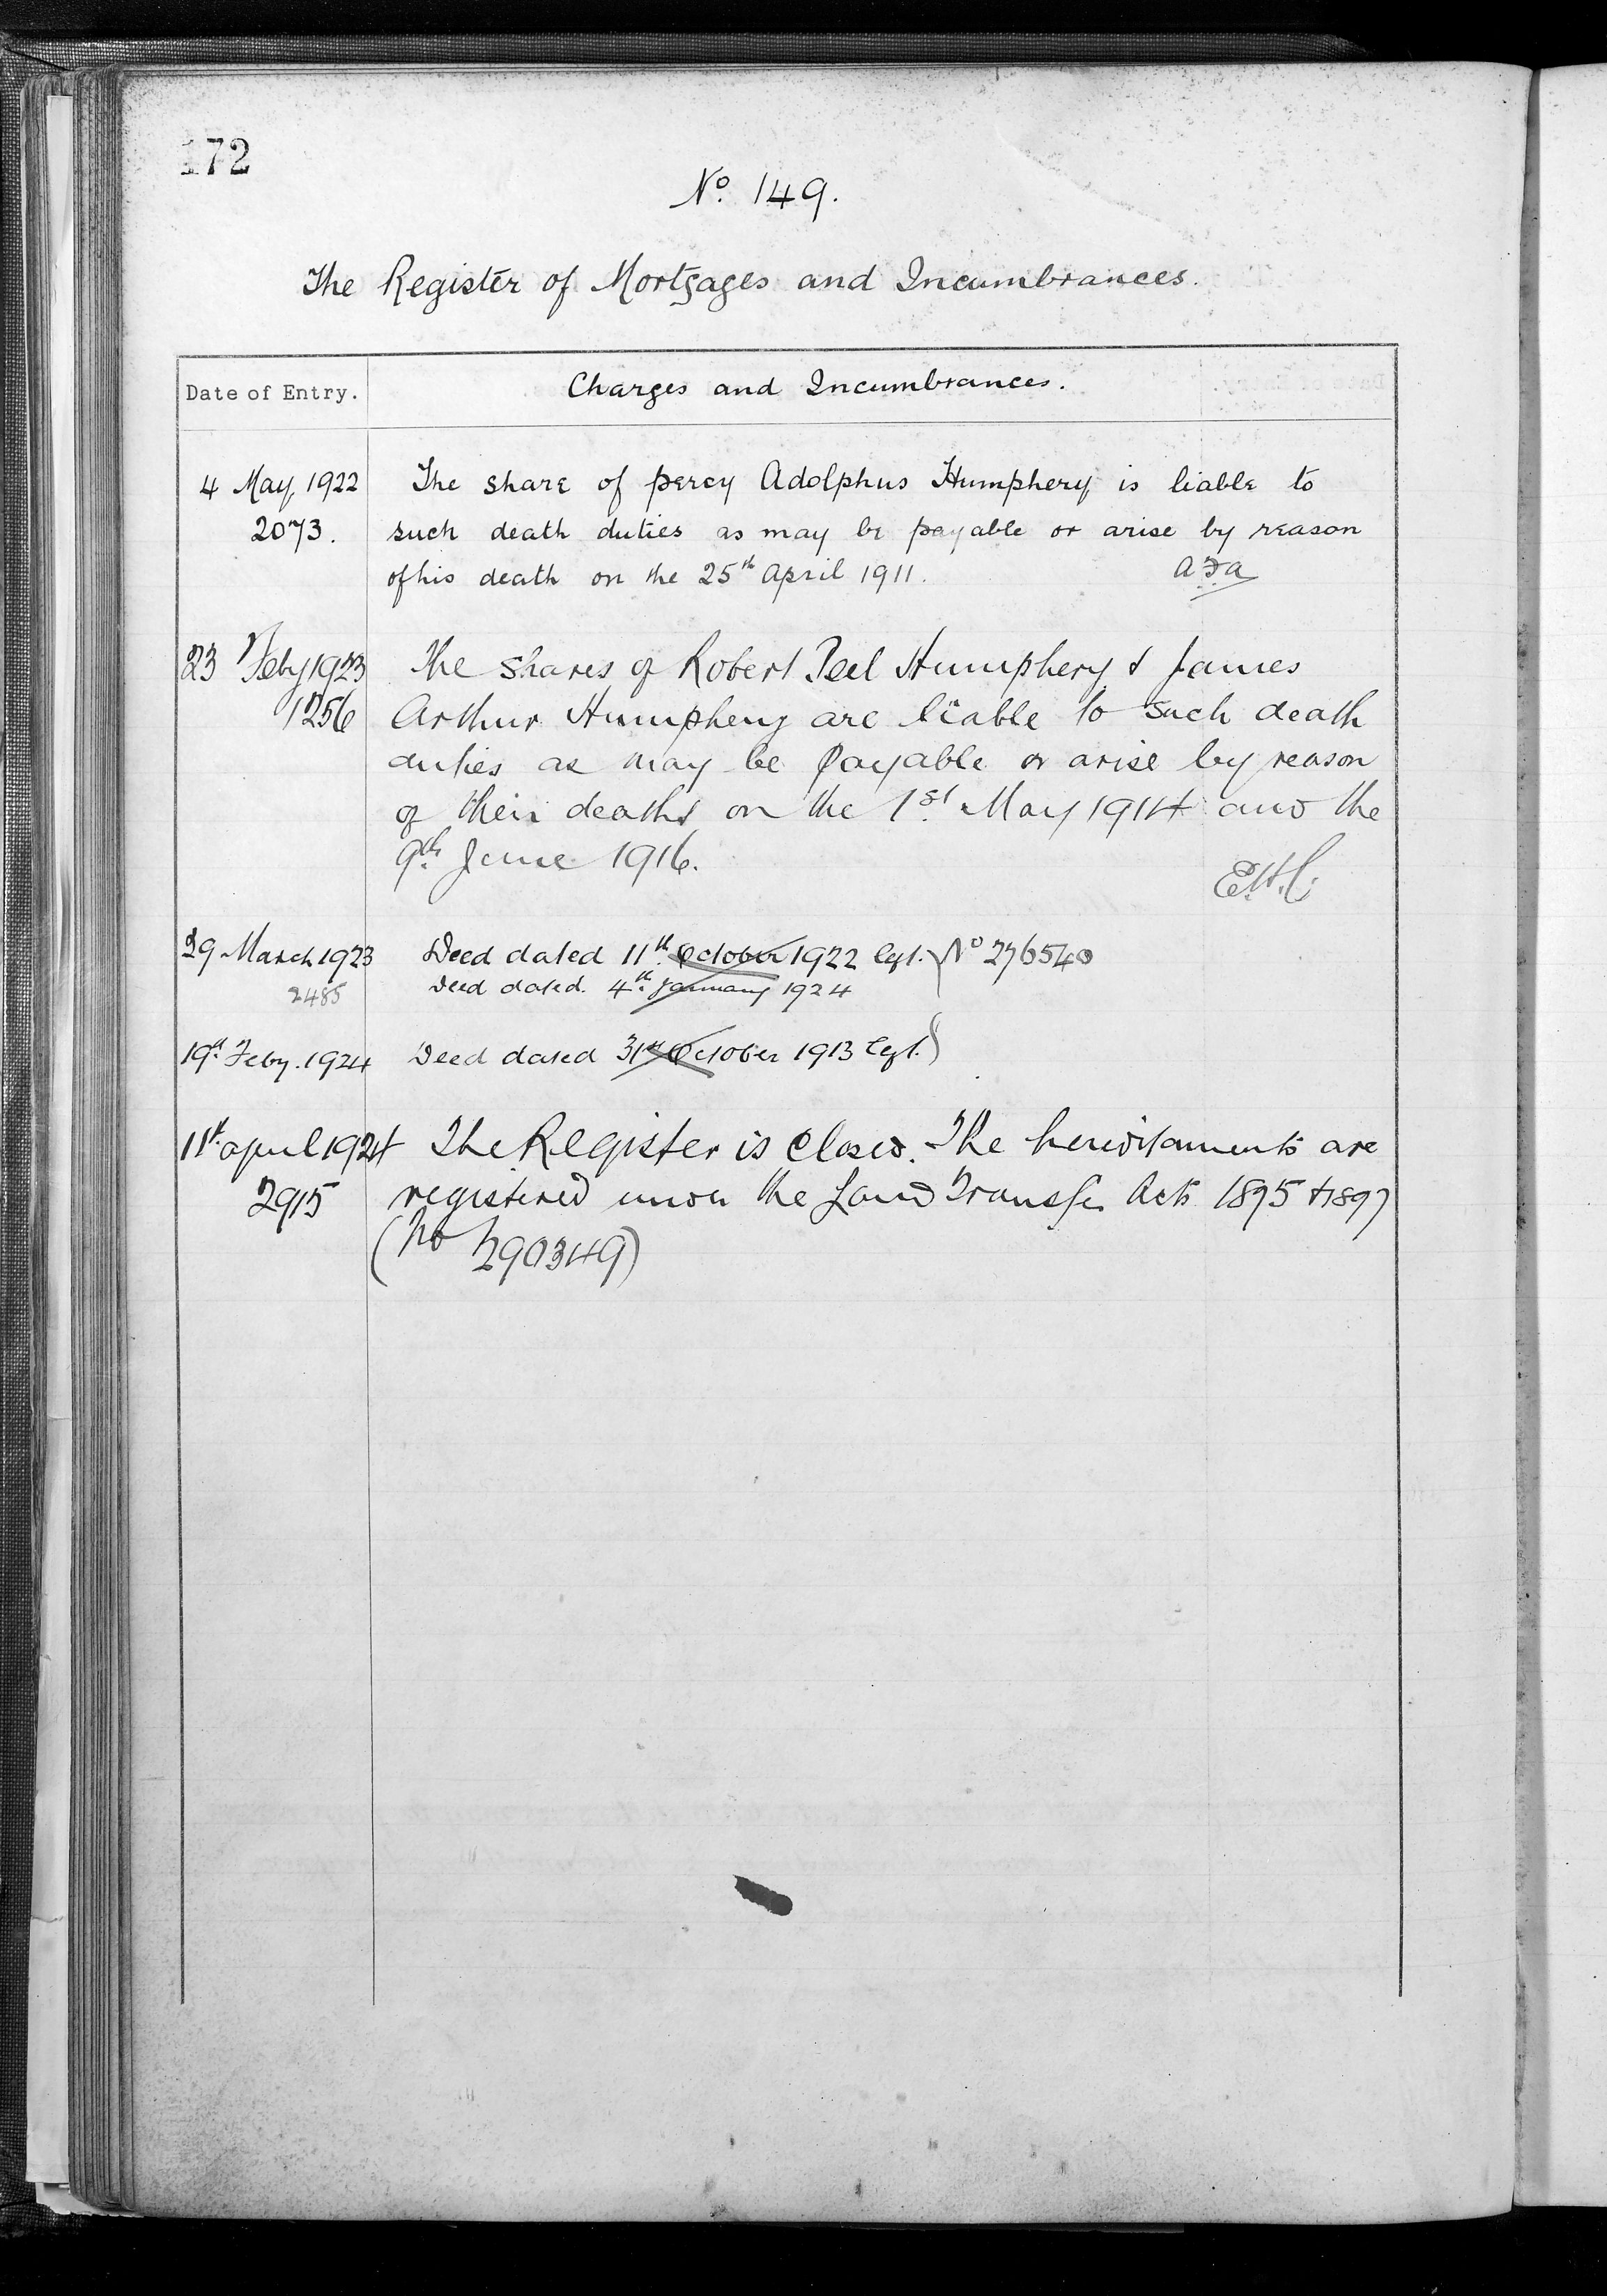 172
No. 149.
The Register of Mortgages and Incumbrances.
Date of Entry.
Charges and Incumbrances.
4 May, 1922
2073.
The share of Percy Adolphus Humphery is liable to
such death duties as may be payable or arise by reason
of his death on the 25th April 1911.
23 Feby 1923
1256
The shares of Robert Peel Humphery & James
Arthur Humphery are liable to such death
duties as may be payable or arise by reason
of their deaths on the 1st May 1914 and the
9th June 1916.
29 March 1923
2485
Deed dated 11th October 1922 No 276540
Deed dated 4th January 1924
19th Feby. 1924
Deed dated 31st October 1913
11th April 1924
2915
The Register is closed. The hereditaments are
registered under the Land Transfer Acts 1875 & 1897
(No 290349)